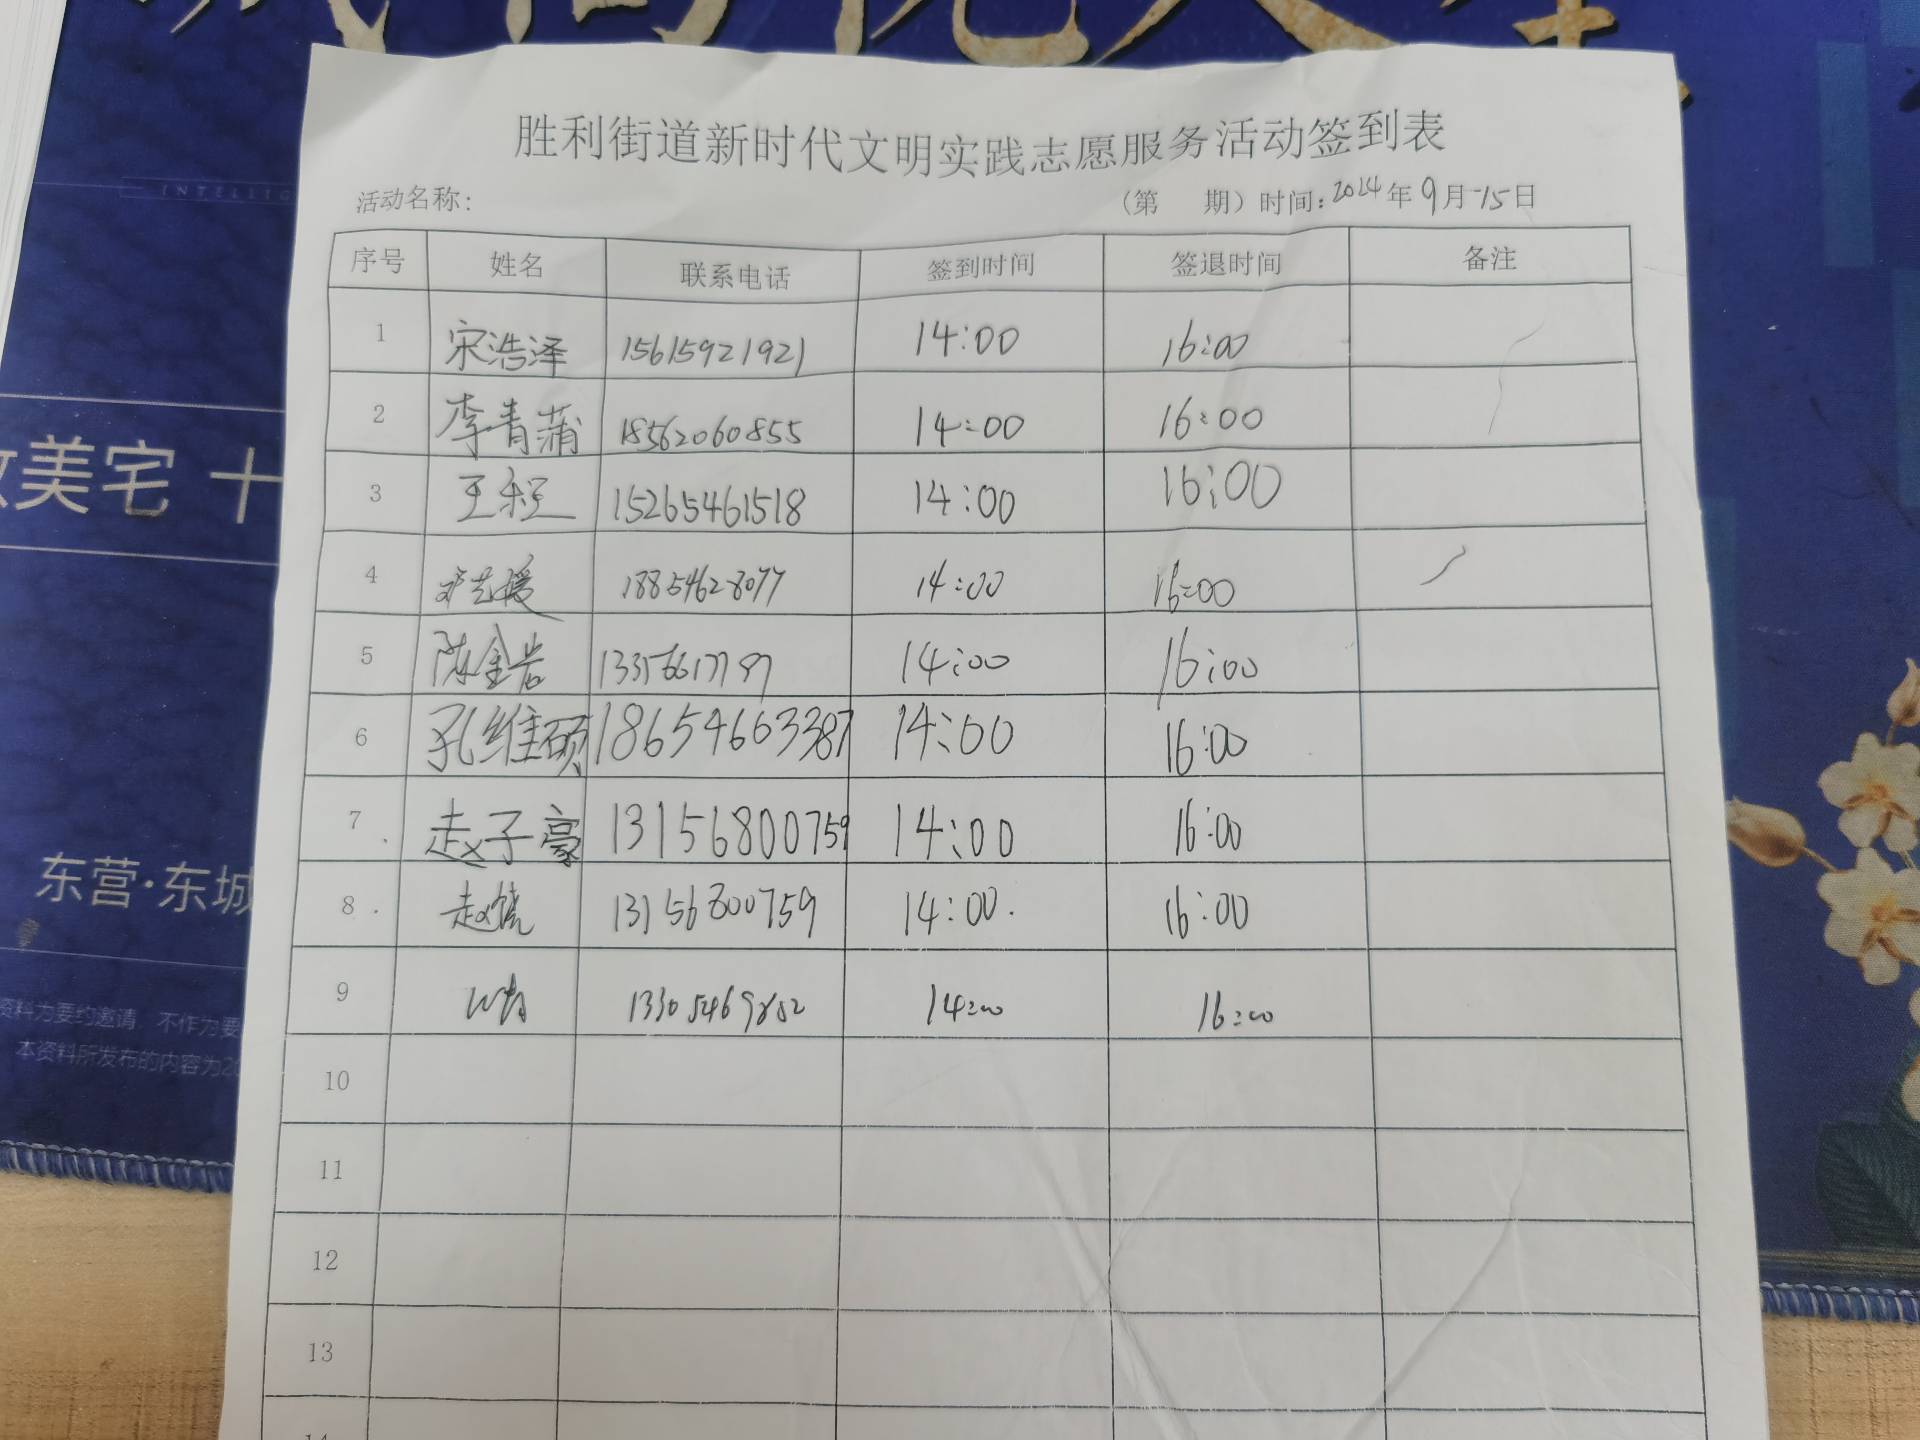 胜利街道新时代文明实践志愿服务活动签到表
活动名称: (第 期) 时间: 2024年9月15日
序号 姓名 联系电话 签到时间 签退时间 备注
1 宋浩泽 15615921921 14:00 16:00
2 李青蒲 18562060855 14:00 16:00
3 王程 15265461518 14:00 16:00
4 18854628077 14:00 16:00
5 陈金岩 14:00 16:00
6 孔维硕 18654663387 14:00 16:00
7 赵子豪 13156800759 14:00 16:00
8 13156800759 14:00. 16:00
9 14:00 16:00
10
11
12
13
14
美宅 十
东营·东城
资料为要约邀请,不作为要
本资料所发布的内容为20